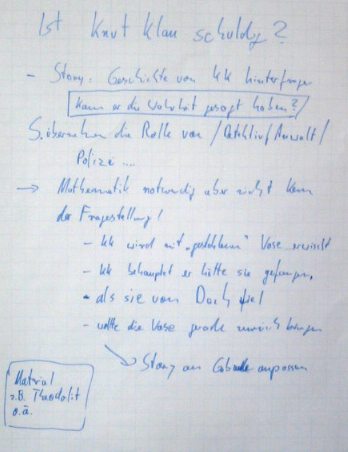 Ist Knut Klau schuldig?
- Story: Geschichte von KK hinterfragen
Kann er die Wahrheit gesagt haben?
S. übernehmen die Rolle von / Detektiv / Anwalt /
Polizei ....
→ Mathematik notwendig aber nicht Kern
der Fragestellung!
- KK wird mit "gestohlener" Vase erwischt
- KK behauptet er hätte sie gefangen,
- als sie vom Dach fiel
- wollte die Vase gerade zurück bringen
→ Story an Gebäude anpassen
Material
z.B. Theodolit
o.ä.